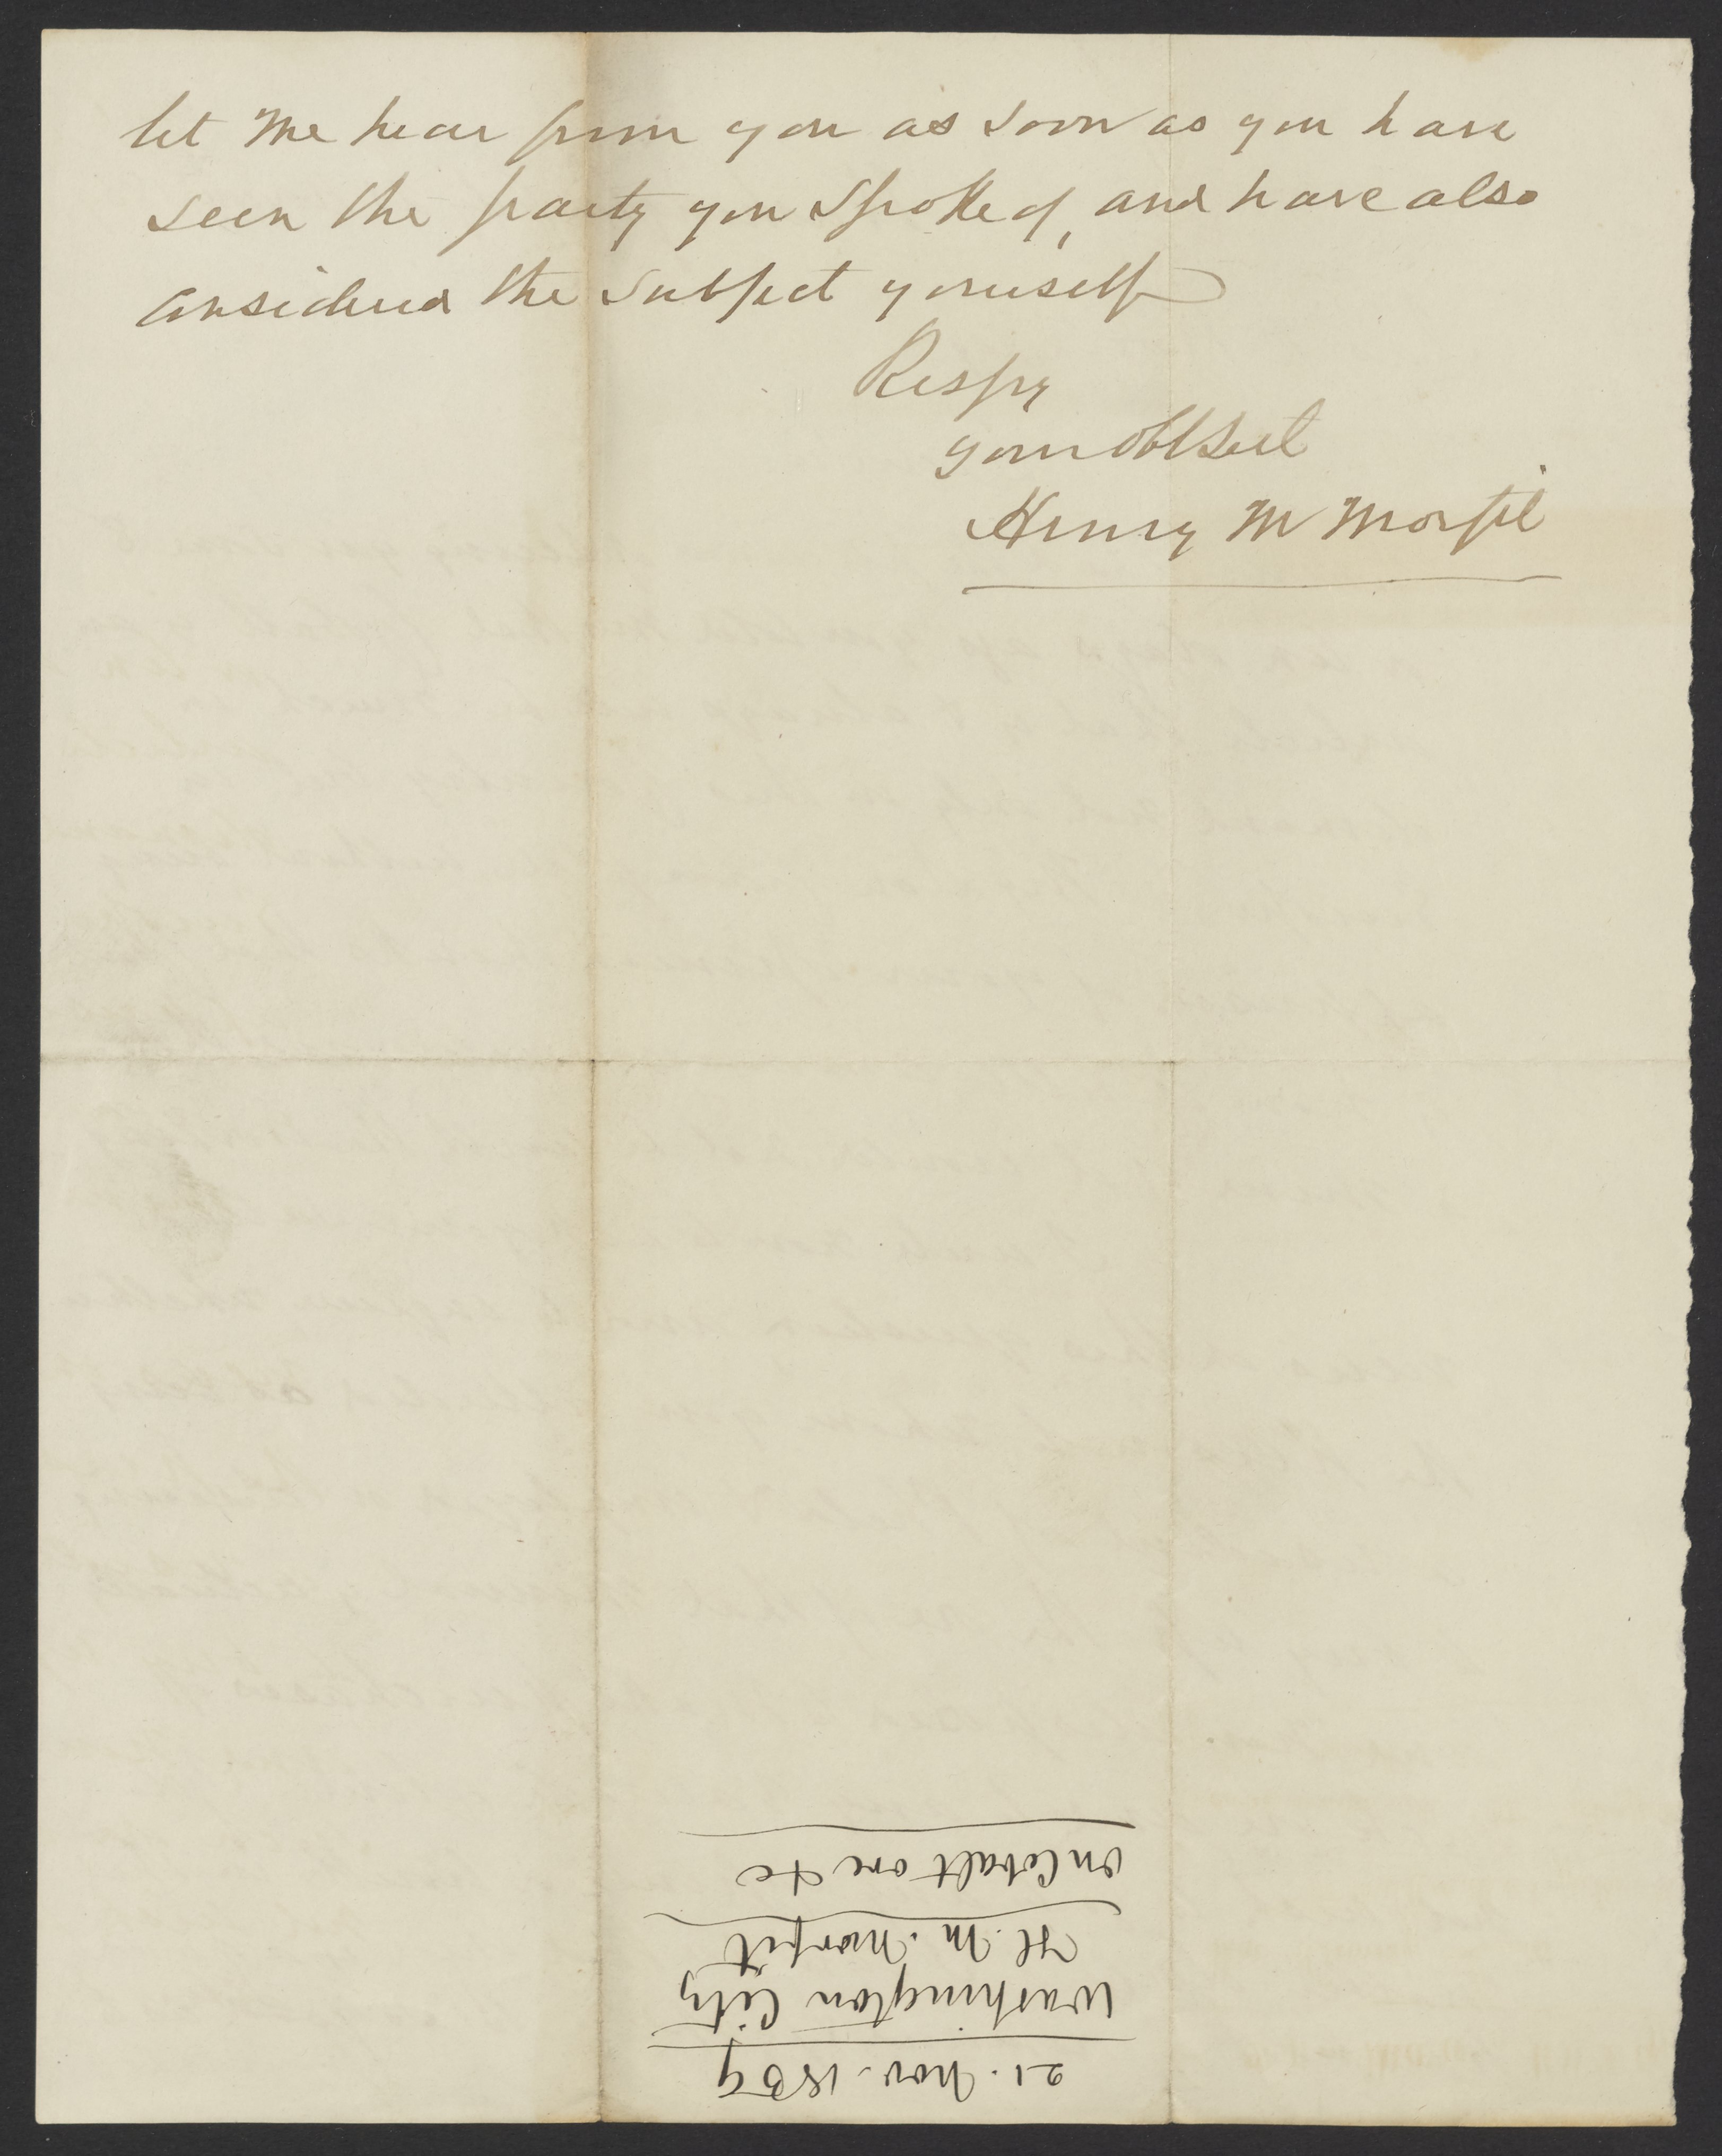 let me hear from you as soon as you have
seen the party you spoke of, and have also
considered the subject yourself
Respy
your obt Sevt
Henry M Morfit
21. Nov. 1839
Washington City
H. M. Morfit
on Cobalt ore &c